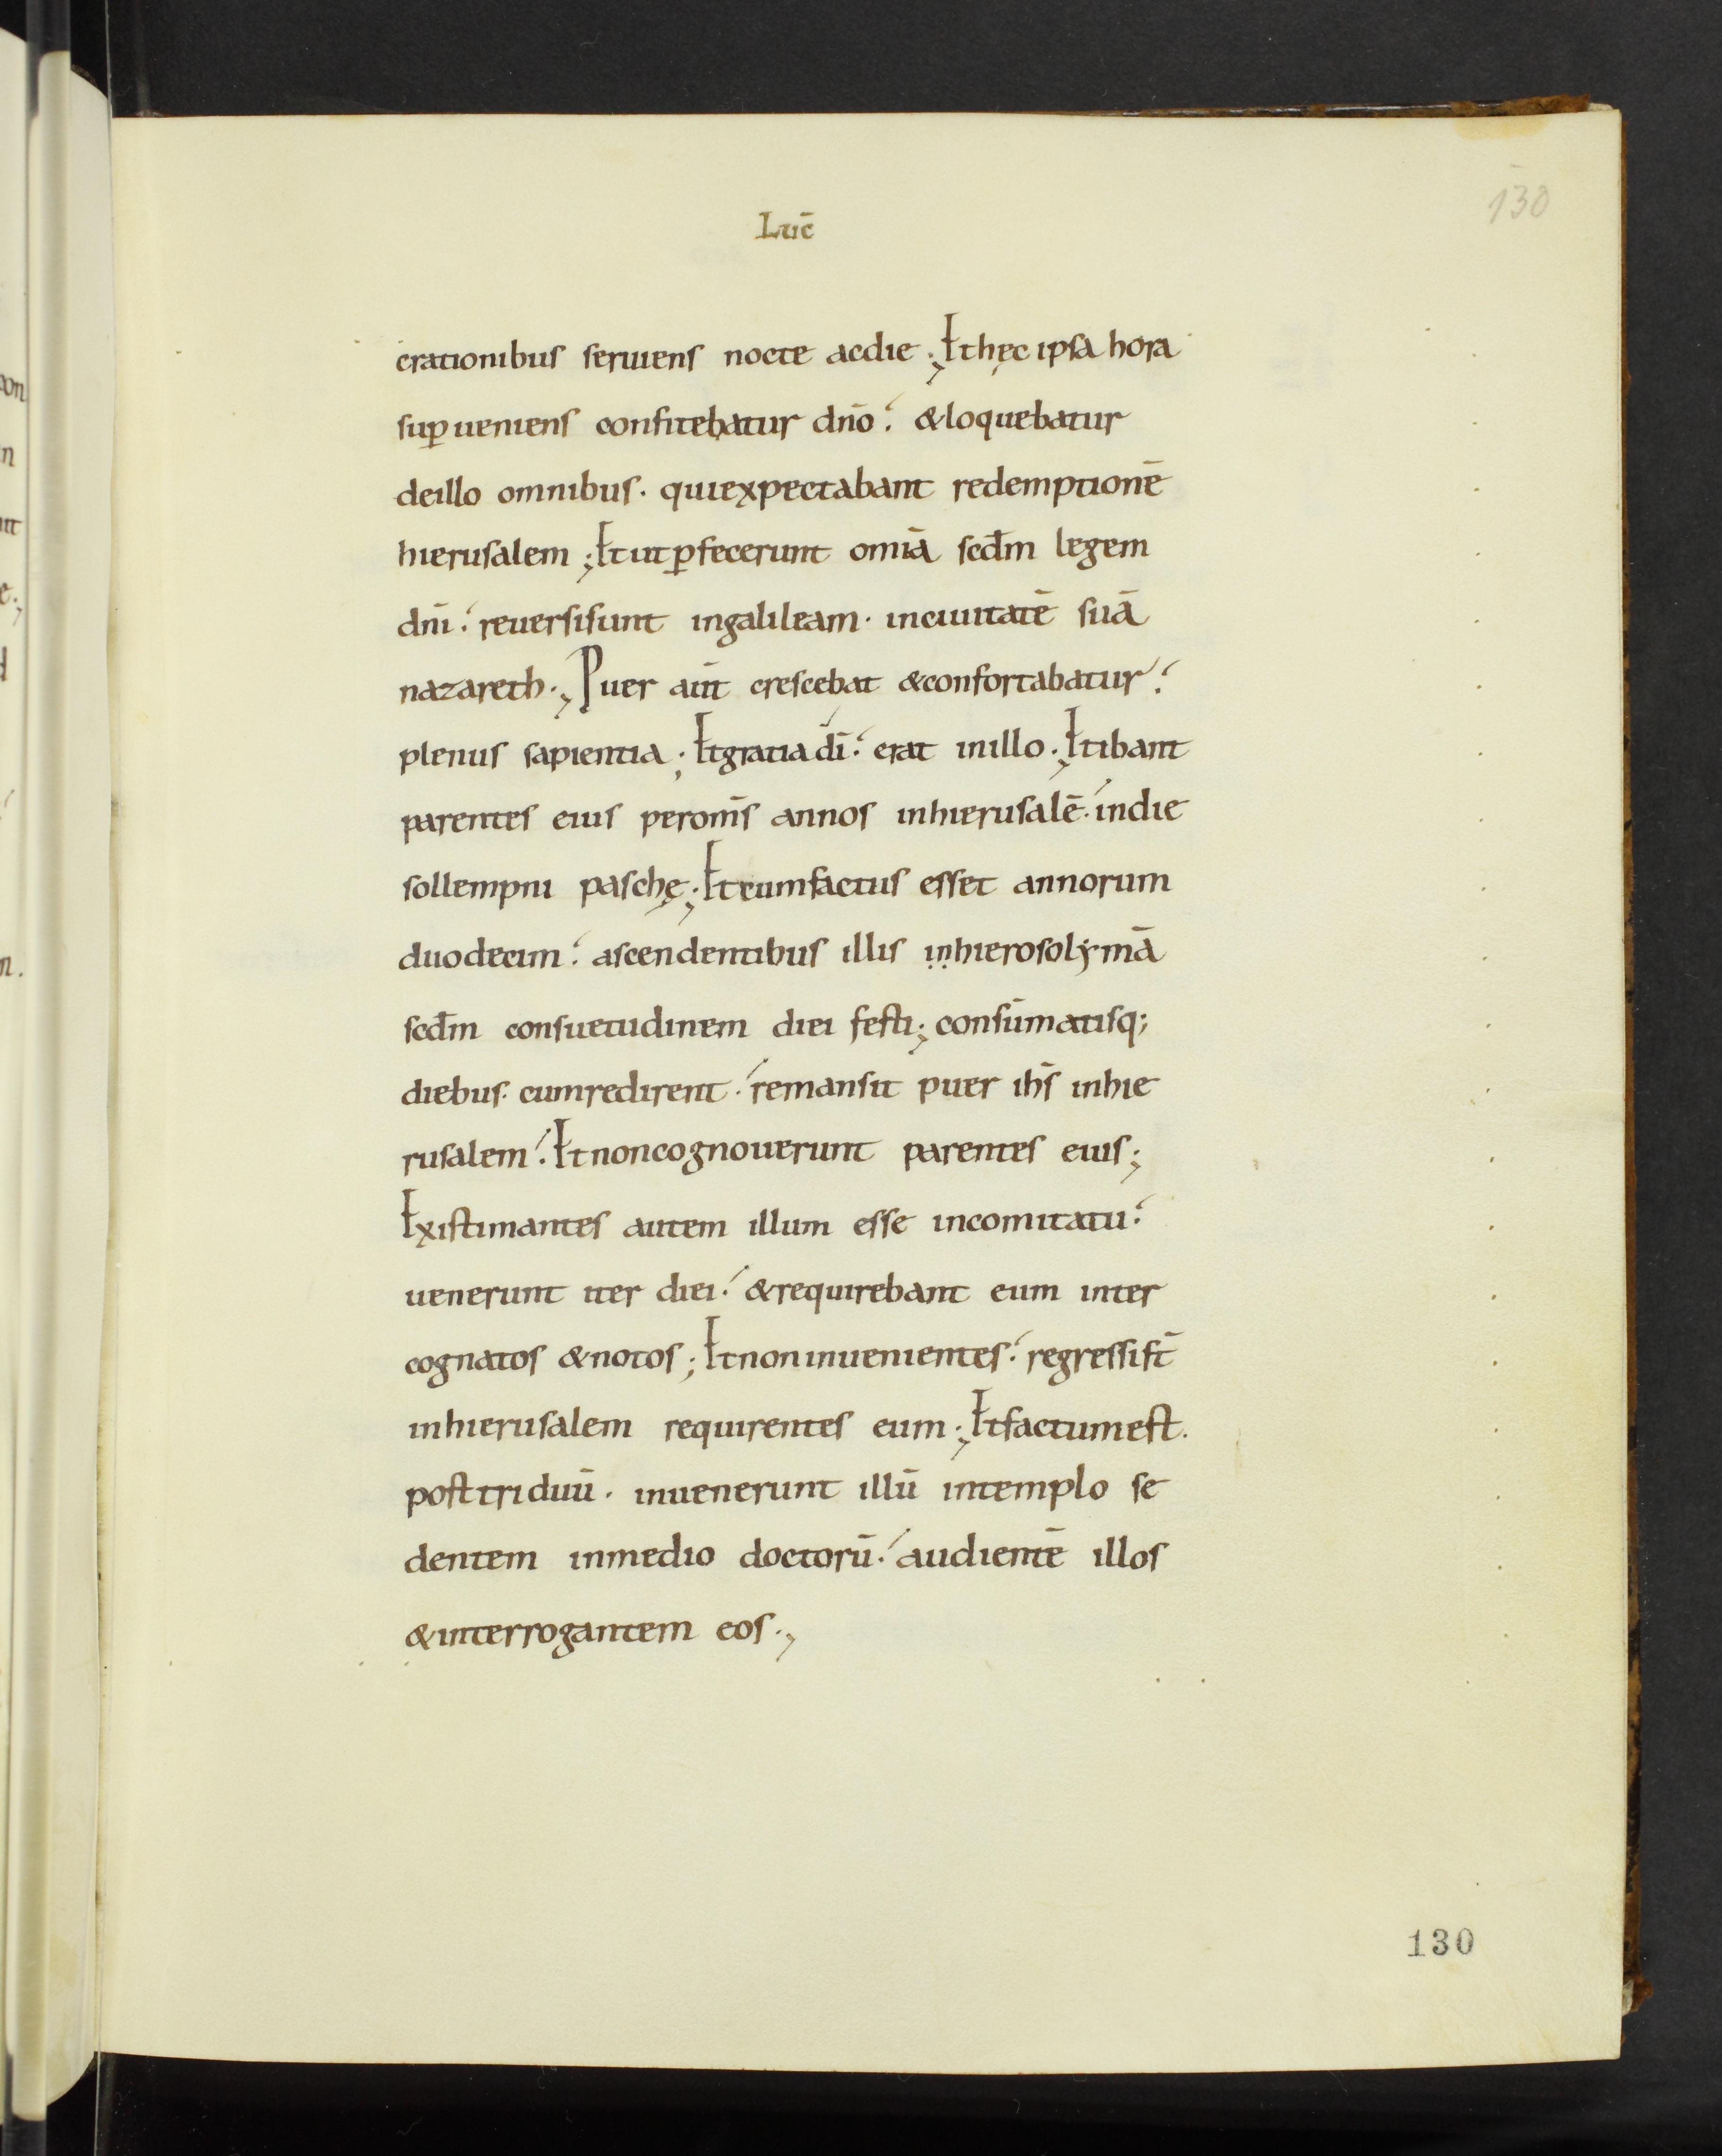 130
Luc̄
crationibus seruiens nocte acdie; Ethęc ipsa hora
suꝑueniens confitebatur dn̄o: &loquebatur
deillo omnibus. quiexpectabant redemptionē
hierusalem; Etutꝑfecerunt omīa scd̄m legem
dn̄i: reuersisunt ingalileam. inciuitatē suā
nazareth., Puer aūt crescebat &confortabatur:
plenus sapientia; Etgratiadī: erat inillo; Etibant
parentes eius peromīs annos inhierusalē: indie
sollempni paschę; Etcumfactus esset annorum
duodecim: ascendentibus illis iṇhierosolẏmā
scd̄m consuetudinem diei festi; consūmatisq;
diebus. cumredirent: remansit puer ih̄s inhie
rusalem: Etnoncognouerunt parentes eius;
Existimantes autem illum esse incomitatu:
uenerunt iter diei: &requirebant eum inter
cognatos &notos; Etnoninuenientes: regressist̄
inhierusalem requirentes eum; Etfactumest.
posttriduū. inuenerunt illū intemplo se
dentem inmedio doctorū: audientē illos
&interrogantem eos.,
130